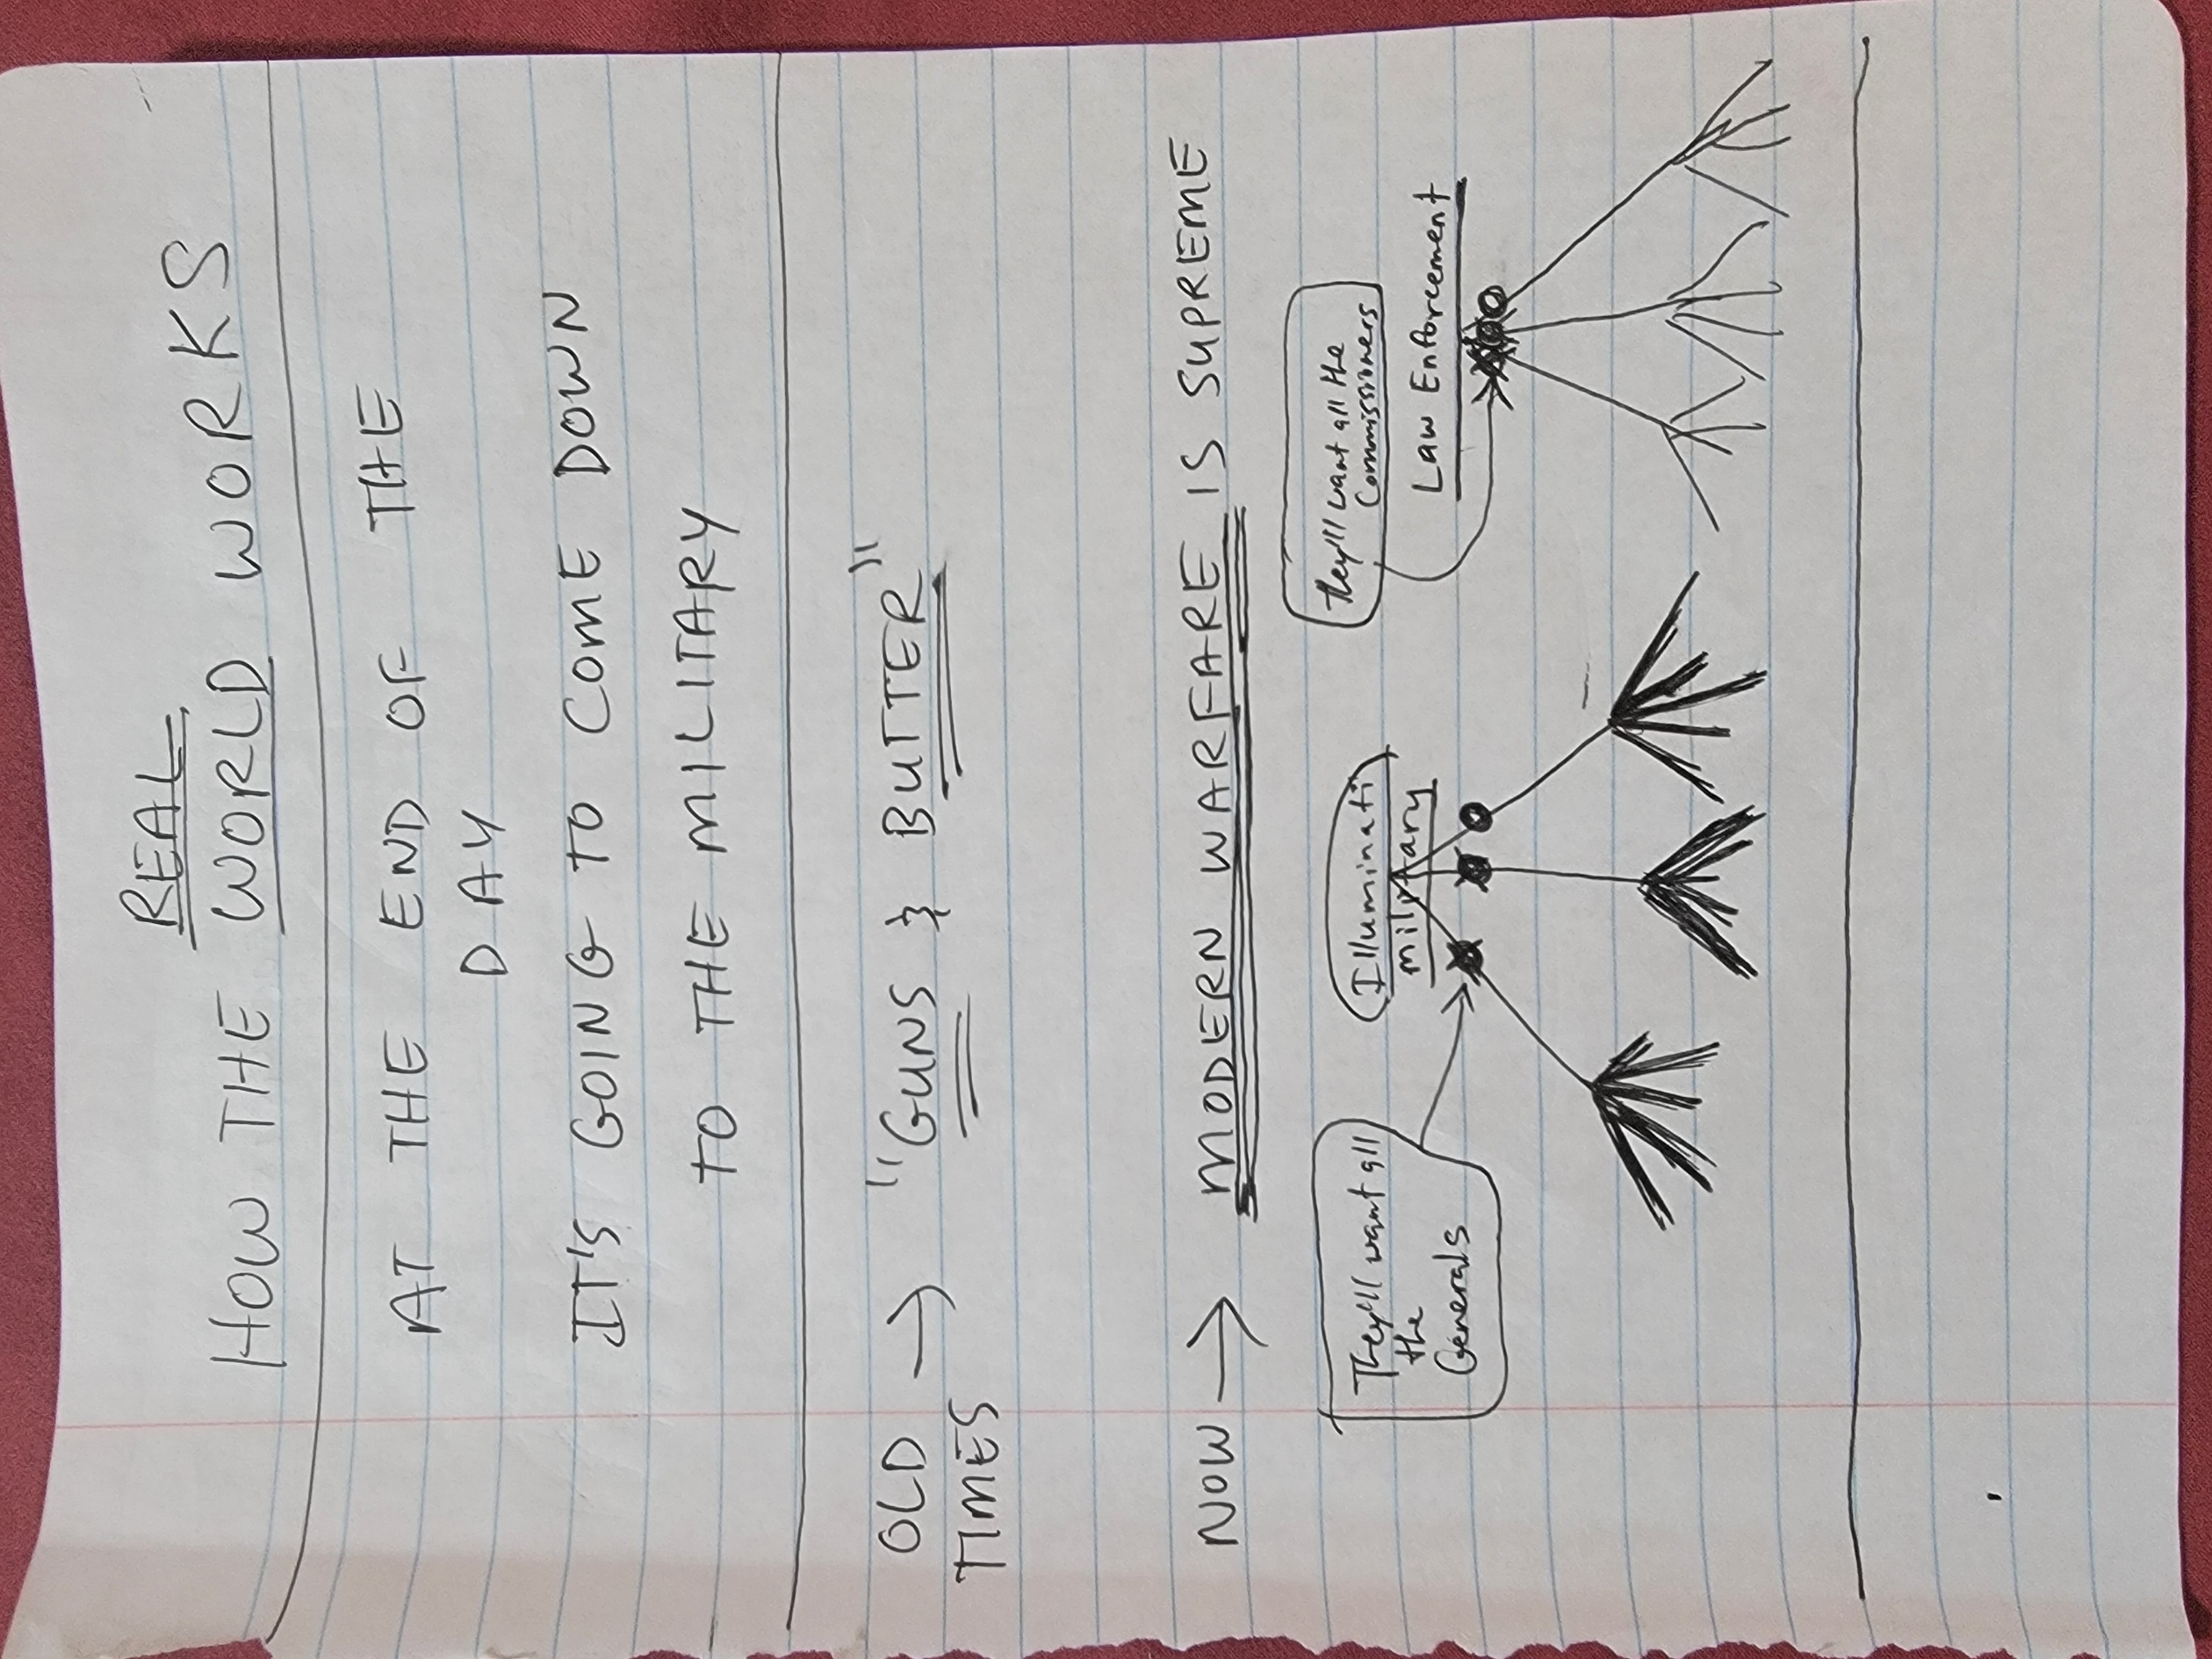 REAL
HOW THE WORLD WORKS
AT THE END OF THE
DAY
IT'S GOING TO COME DOWN
TO THE MILITARY
OLD TIMES → "GUNS & BUTTER"
NOW → MODERN WARFARE IS SUPREME
They'll want all
the
Generals
Illuminati
military
They'll want all the
Commissioners
Law Enforcement